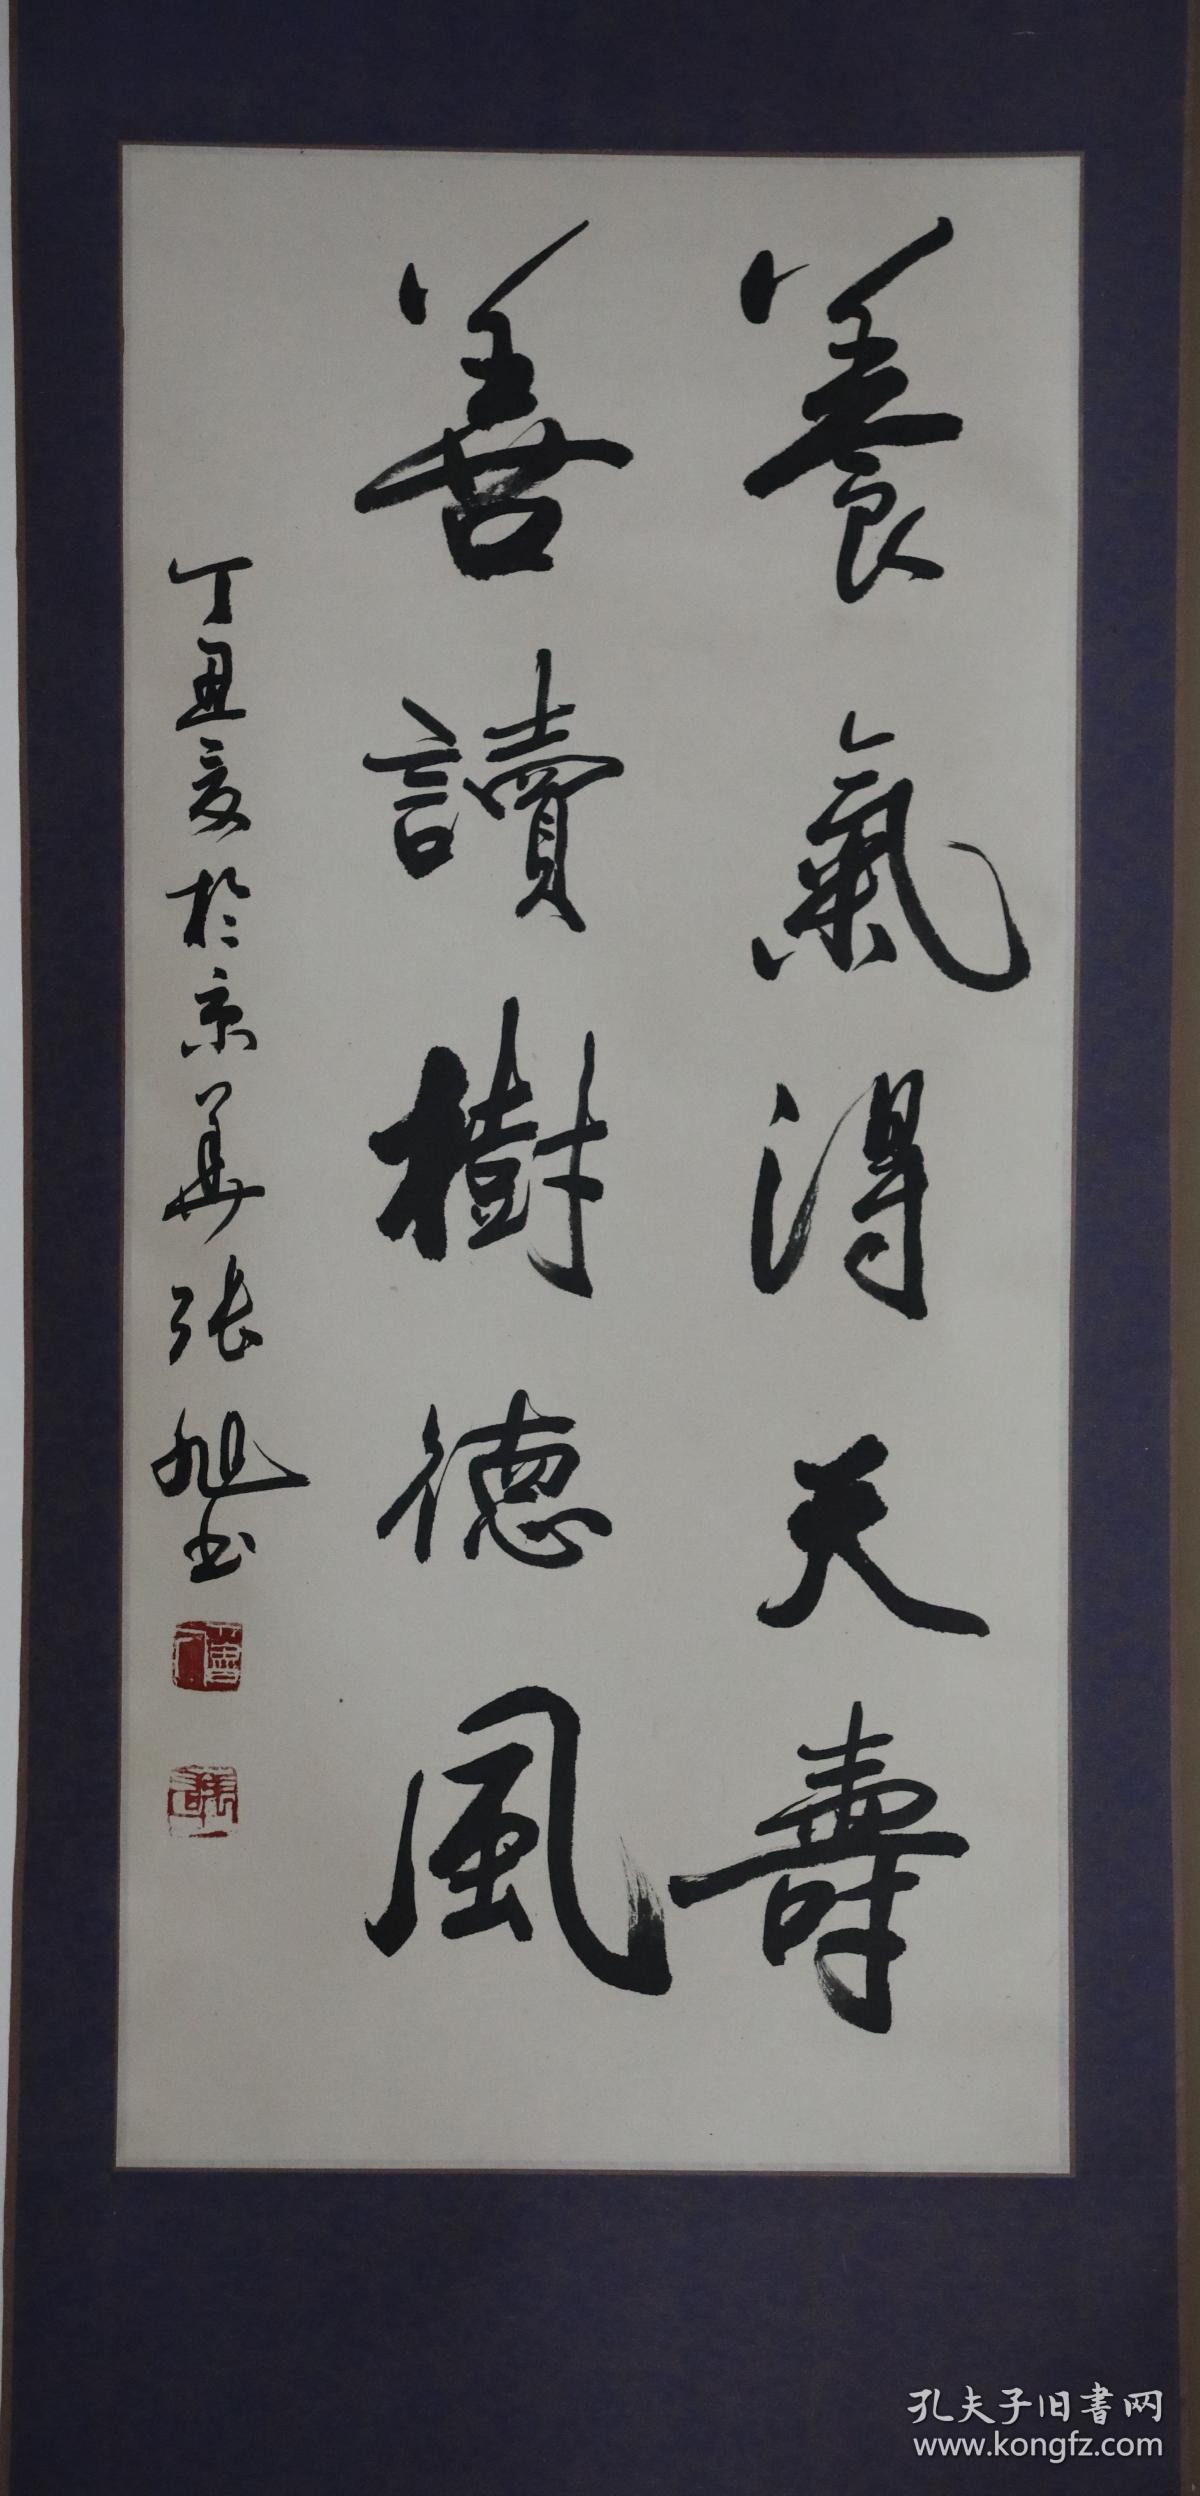 養氣得天壽
善讀樹德風
丁丑夏於京華張旭书
孔夫子旧書网
www.kongfz.com